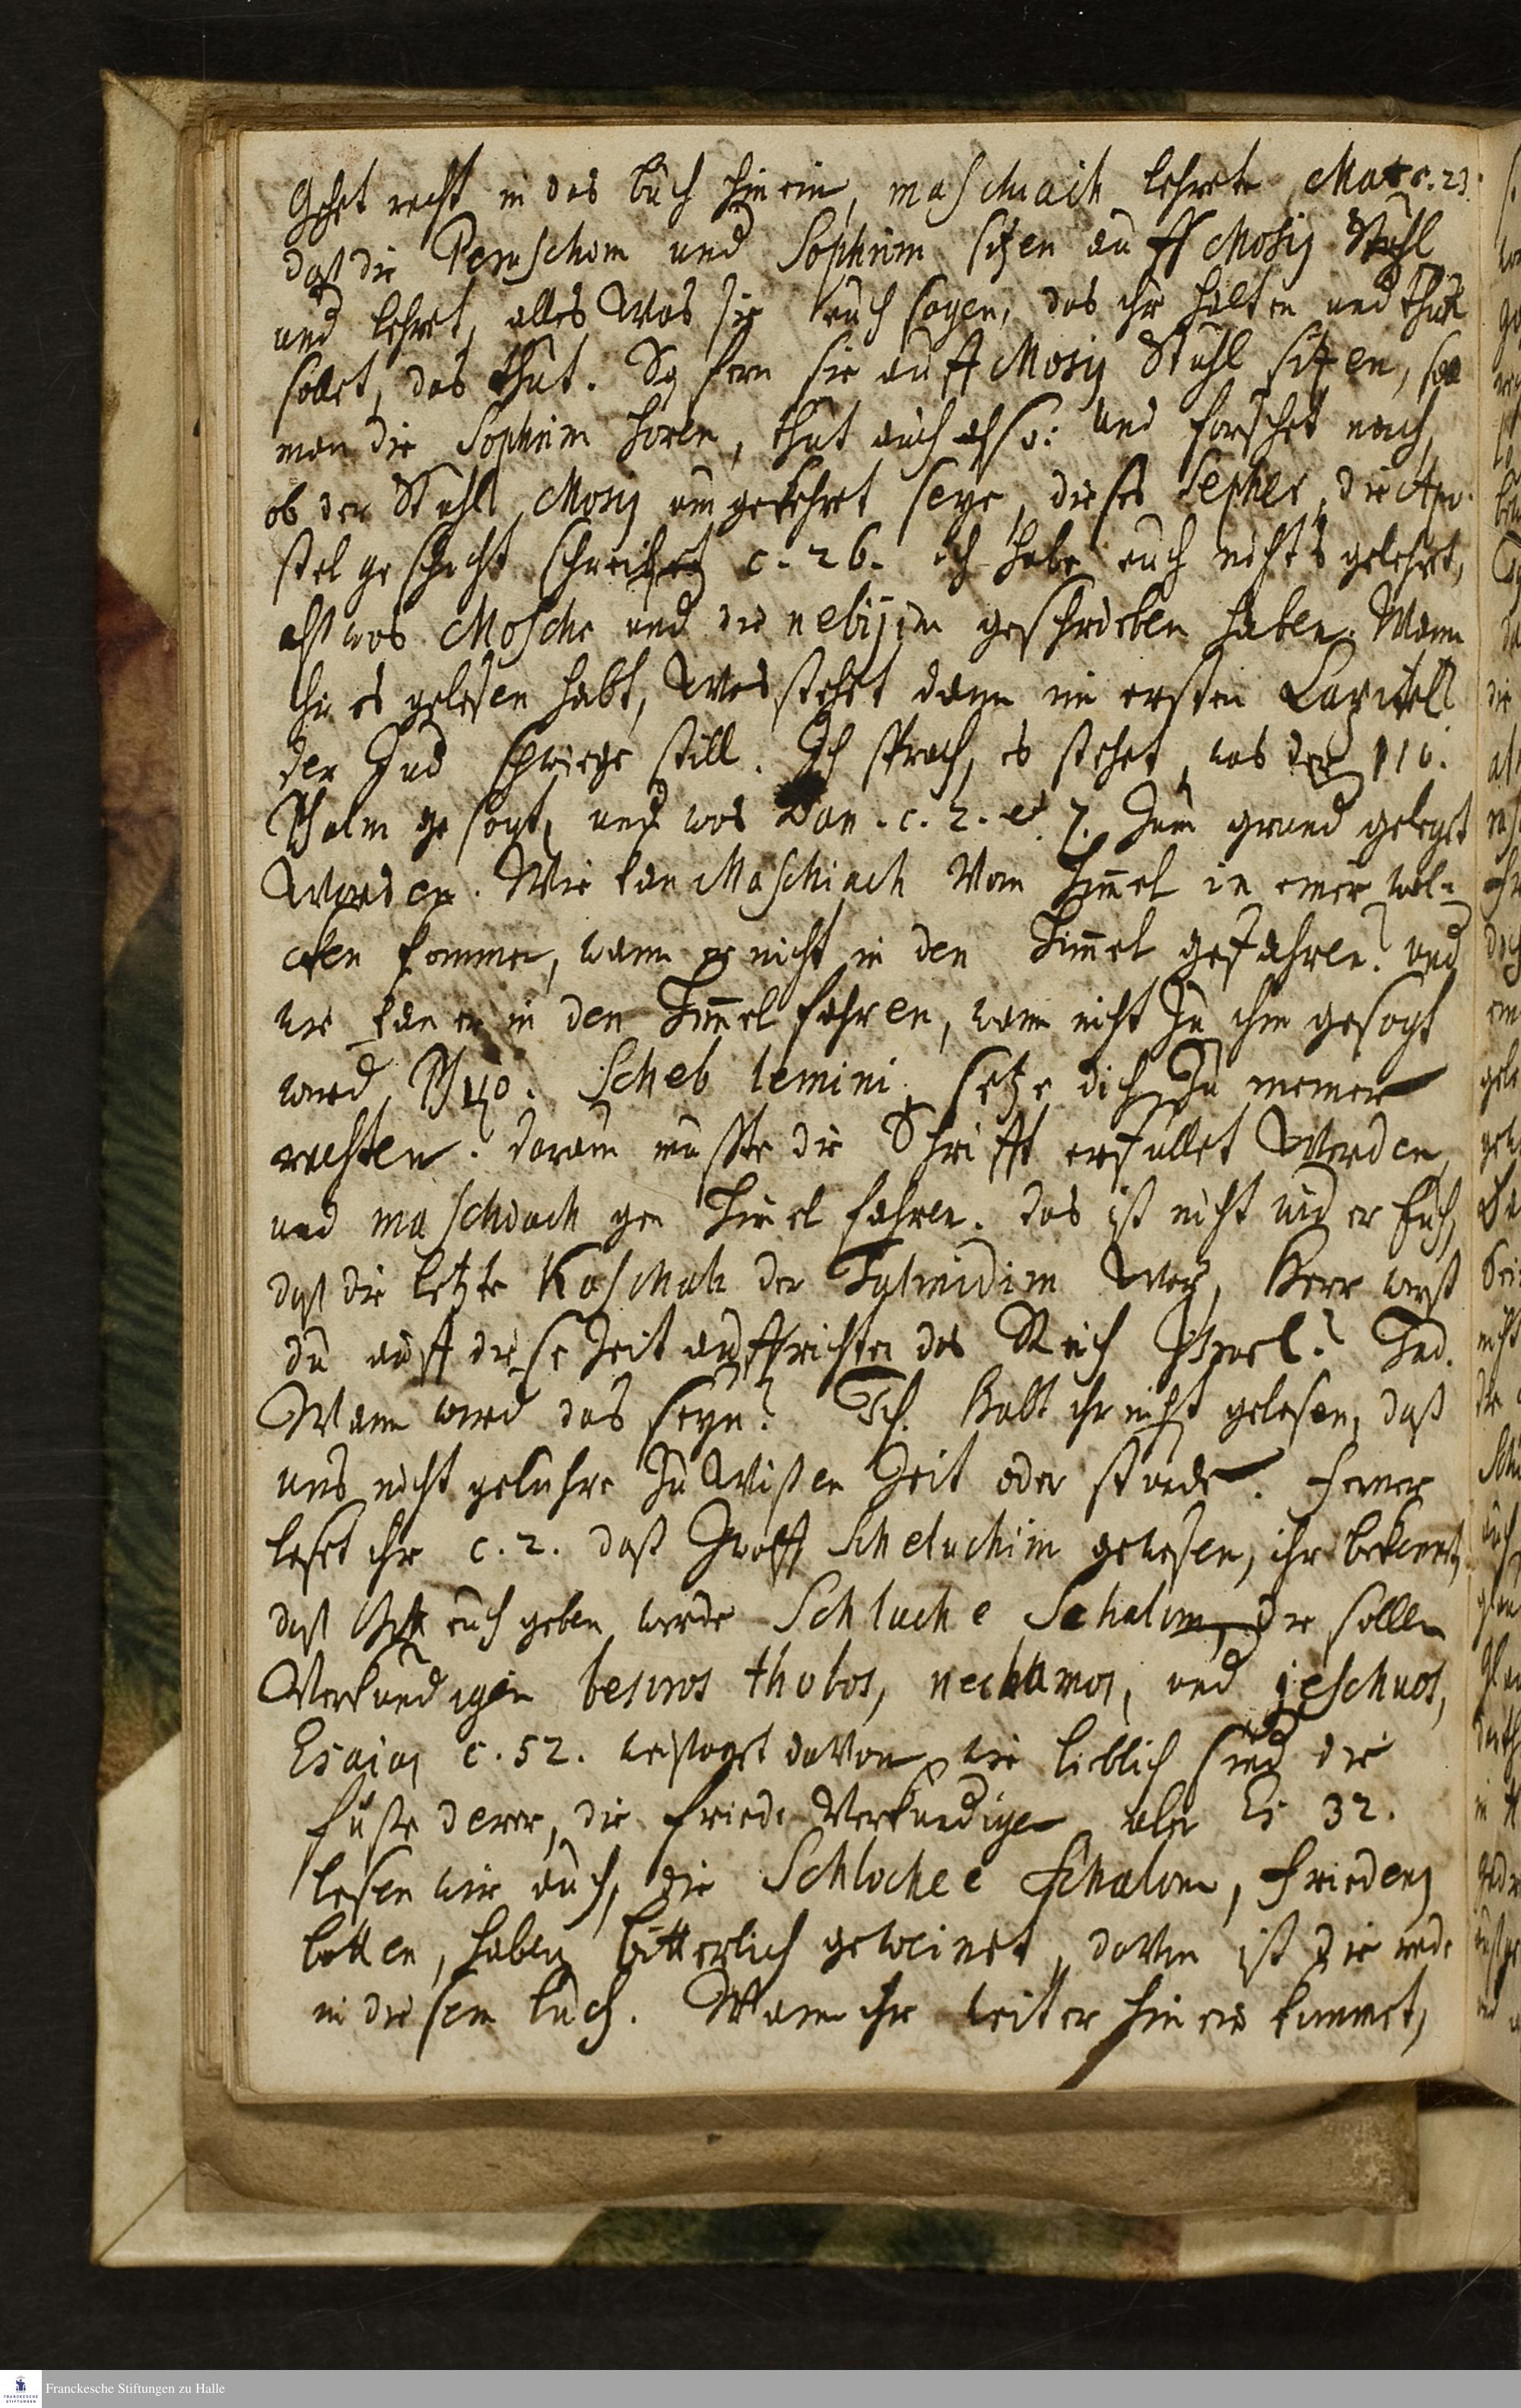 Gehet recht in das buch hinein, maschiach lehrete Mat c. 23.
daß die Peruschim und Sophrim sitzen auff Mosis Stuhl
und lehret, alles was sie euch sagen, das ihr halten und thun
sollet, das thut. So fern sie auff Mosis Stuhl sitzen, soll
man die Sophrim horen, thut auch also: und forschet nach,
ob der Stuhl Mosis umgekehret seye, dieses Sepher, die Apo-
stel geschicht schreibet c. 26. ich habe euch nichts gelehrt,
alß was Mosche und die nebijim geschrieben haben. Wann
ihr es gelesen habt, was stehet dann im ersten Capitel?
der Jud schwiege still. Ich sprach, es stehet, was der 110.
Psalm gesagt, und was Dan. c. 2. et 7. zum grund geleget
worden. Wie kan Maschiach vom Himel in einer wol-
cken kommen, wann er nicht in den Himel gefahren? und
wie kan er in den Himel fahren, wann nicht zu ihm gesagt
wird Ps 110. Scheb lemini, setze dich zu meiner
rechten? darum muste die Schrifft erfullet werden,
und maschiach gen Himel fahren. das ist nicht
daß die letzte Kaschah der Talmidim war, Herr wirst
du auff diese Zeit auffrichten das Reich Israel? Jud.
Wann wird das seyn? Ich. Habt ihr nicht gelesen, daß
uns nicht gebuhre zu wißen Zeit oder stunde. Ferner
leset ihr c. 2. daß Zwolff Scheluchim gewesen, ihr bekennet,
daß Gott euch geben werde Schluche Schalom, die sollen
verkundigen besuros thobos, nechamos, und jeschuos,
Esaias c. 52. weissaget davon, wie lieblich sind die
fuße derer, die friede verkundigen aber Es 32.
lesen wir auch, die Schlochee Schalom, friedens
botten, haben bitterlich geweinet, davon ist die rede
in diesem buch. Wann ihr weiter hinein kommet,
Franckesche Stiftungen zu Halle